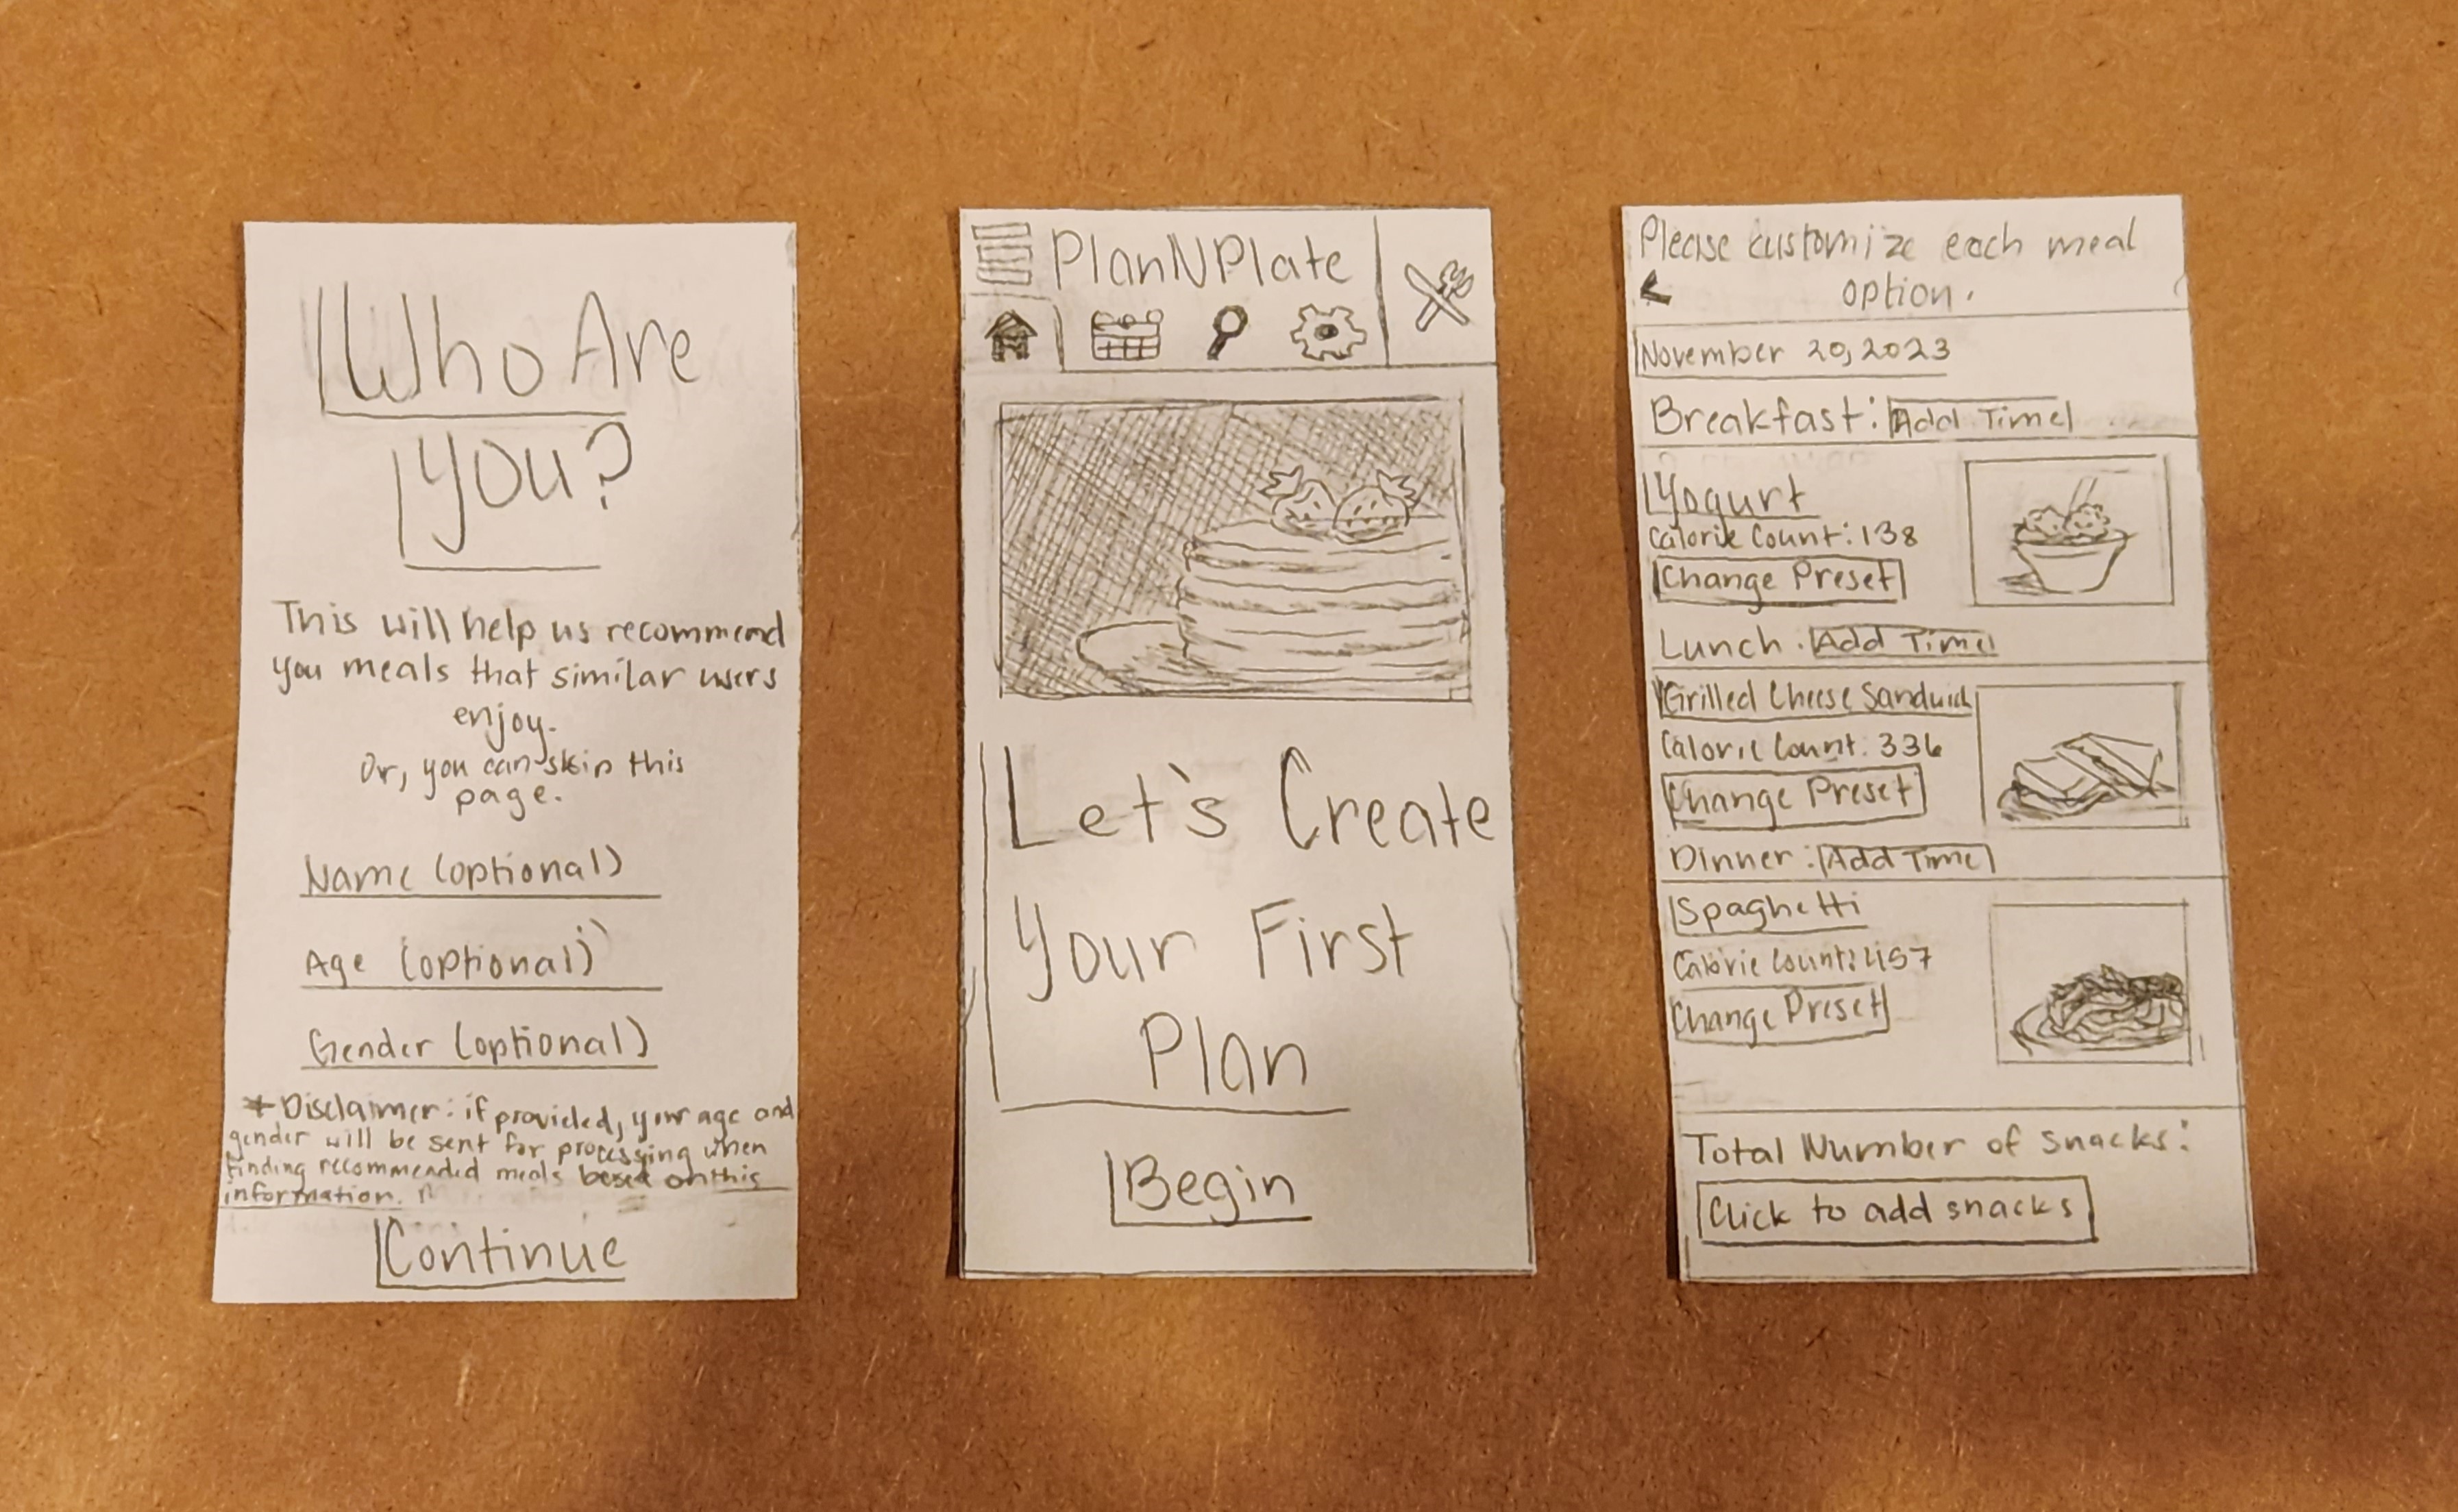 Who Are
You?
This will help us recommend
you meals that similar users
enjoy.
Or, you can skip this
page.
Name (optional)
Age (optional)
Gender (optional)
* Disclaimer: if provided, your age and
gender will be sent for processing when
finding recommended meals based on this
information.
Continue
PlanNPlate
Let's Create
Your First
Plan
Begin
Please customize each meal
option.
November 20, 2023
Breakfast: Add Time
Yogurt
Calorie Count: 138
Change Preset
Lunch: Add Time
Grilled Cheese Sandwich
Calorie Count: 336
Change Preset
Dinner: Add Time
Spaghetti
Calorie Count: 457
Change Preset
Total Number of Snacks:
Click to add snacks